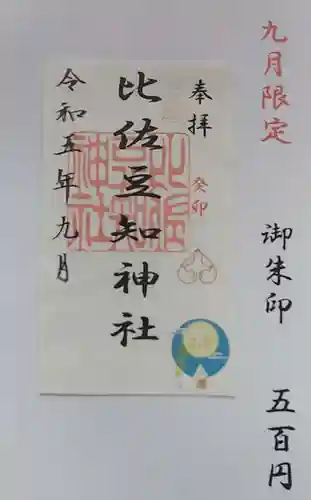 九月限定
御朱印 五百円
奉拝
癸卯
比佐豆知神社
令和五年九月